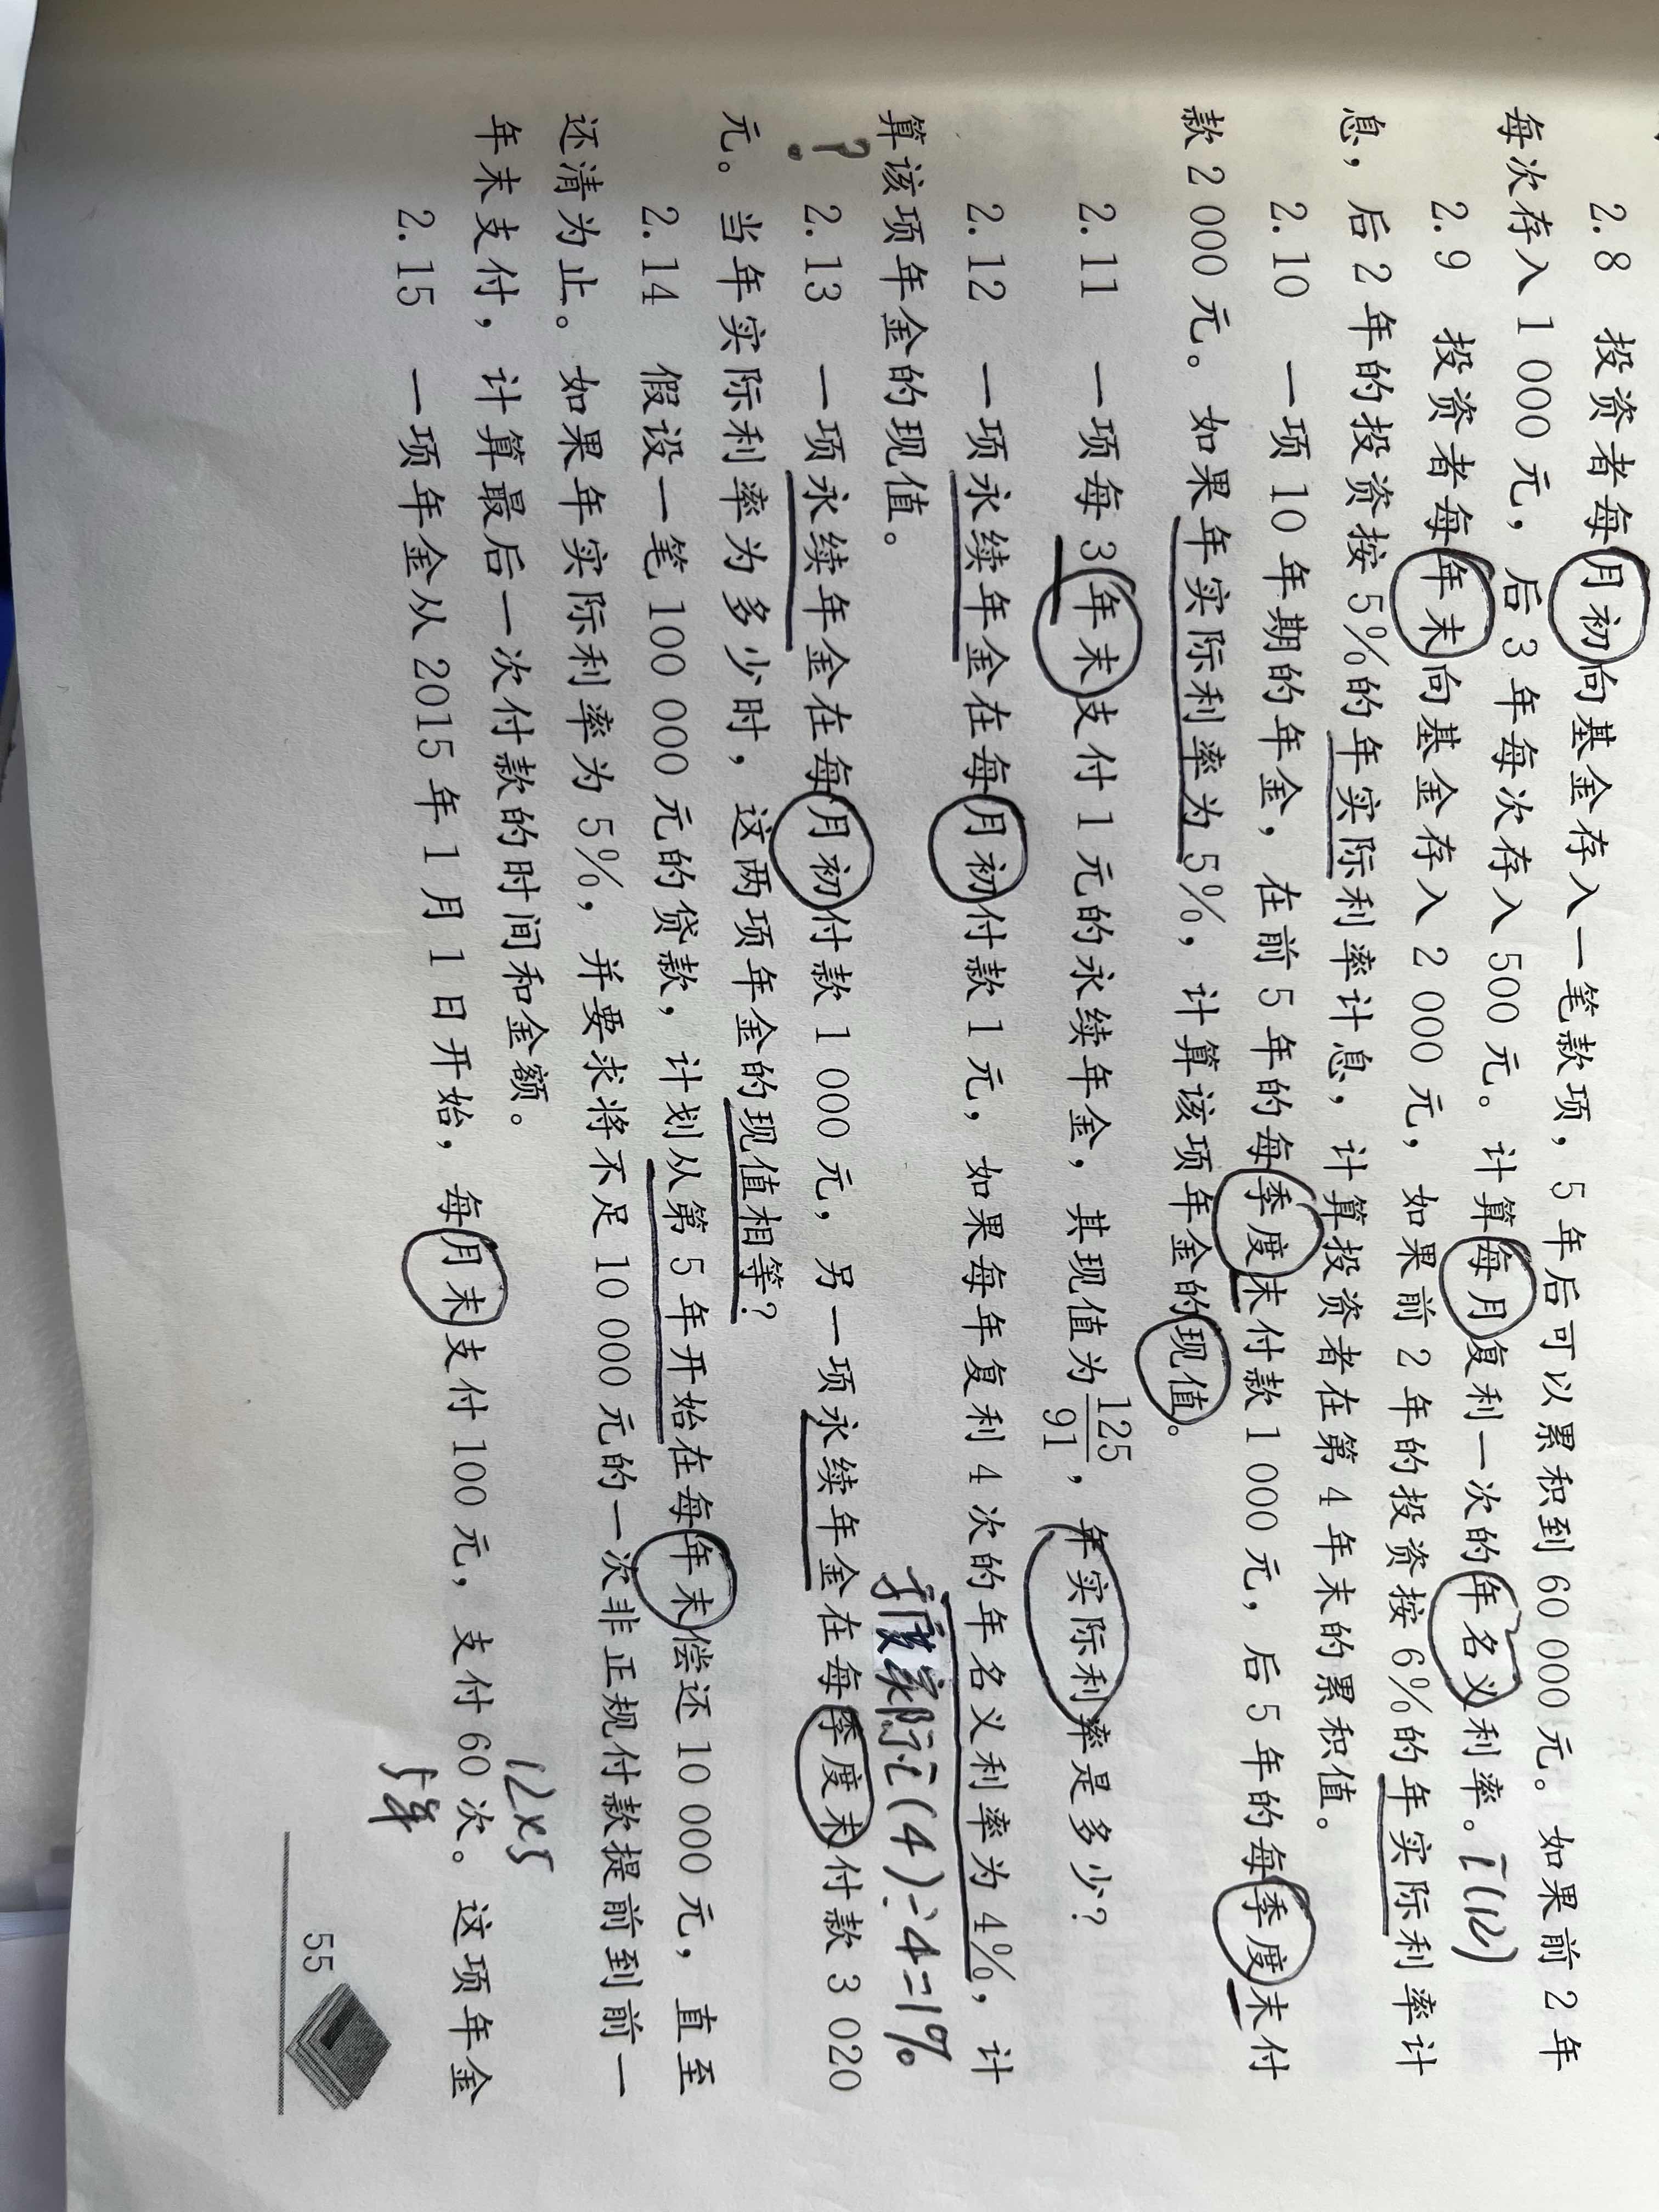 2.8 投资者每月初向基金存入一笔款项，5 年后可以累积到 60 000 元。如果前 2 年
每次存入 1 000 元，后 3 年每次存入 500 元。计算每月复利一次的年名义利率。i(12)
2.9 投资者每年末向基金存入 2 000 元，如果前 2 年的投资按 6%的年实际利率计
息，后 2 年的投资按 5%的年实际利率计息，计算投资者在第 4 年末的累积值。
2.10 一项 10 年期的年金，在前 5 年的每季度末付款 1 000 元，后 5 年的每季度末付
款 2 000 元。如果年实际利率为 5%，计算该项年金的现值。
2.11 一项每 3 年末支付 1 元的永续年金，其现值为 125/91，年实际利率是多少？
2.12 一项永续年金在每月初付款 1 元，如果每年复利 4 次的年名义利率为 4%，计
算该项年金的现值。
季度实际i(4)÷4=1%
? 2.13 一项永续年金在每月初付款 1 000 元，另一项永续年金在每季度末付款 3 020
元。当年实际利率为多少时，这两项年金的现值相等？
2.14 假设一笔 100 000 元的贷款，计划从第 5 年开始在每年末偿还 10 000 元，直至
还清为止。如果年实际利率为 5%，并要求将不足 10 000 元的一次非正规付款提前到前一
年末支付，计算最后一次付款的时间和金额。
12×5
2.15 一项年金从 2015 年 1 月 1 日开始，每月末支付 100 元，支付 60 次。这项年金
5年
55